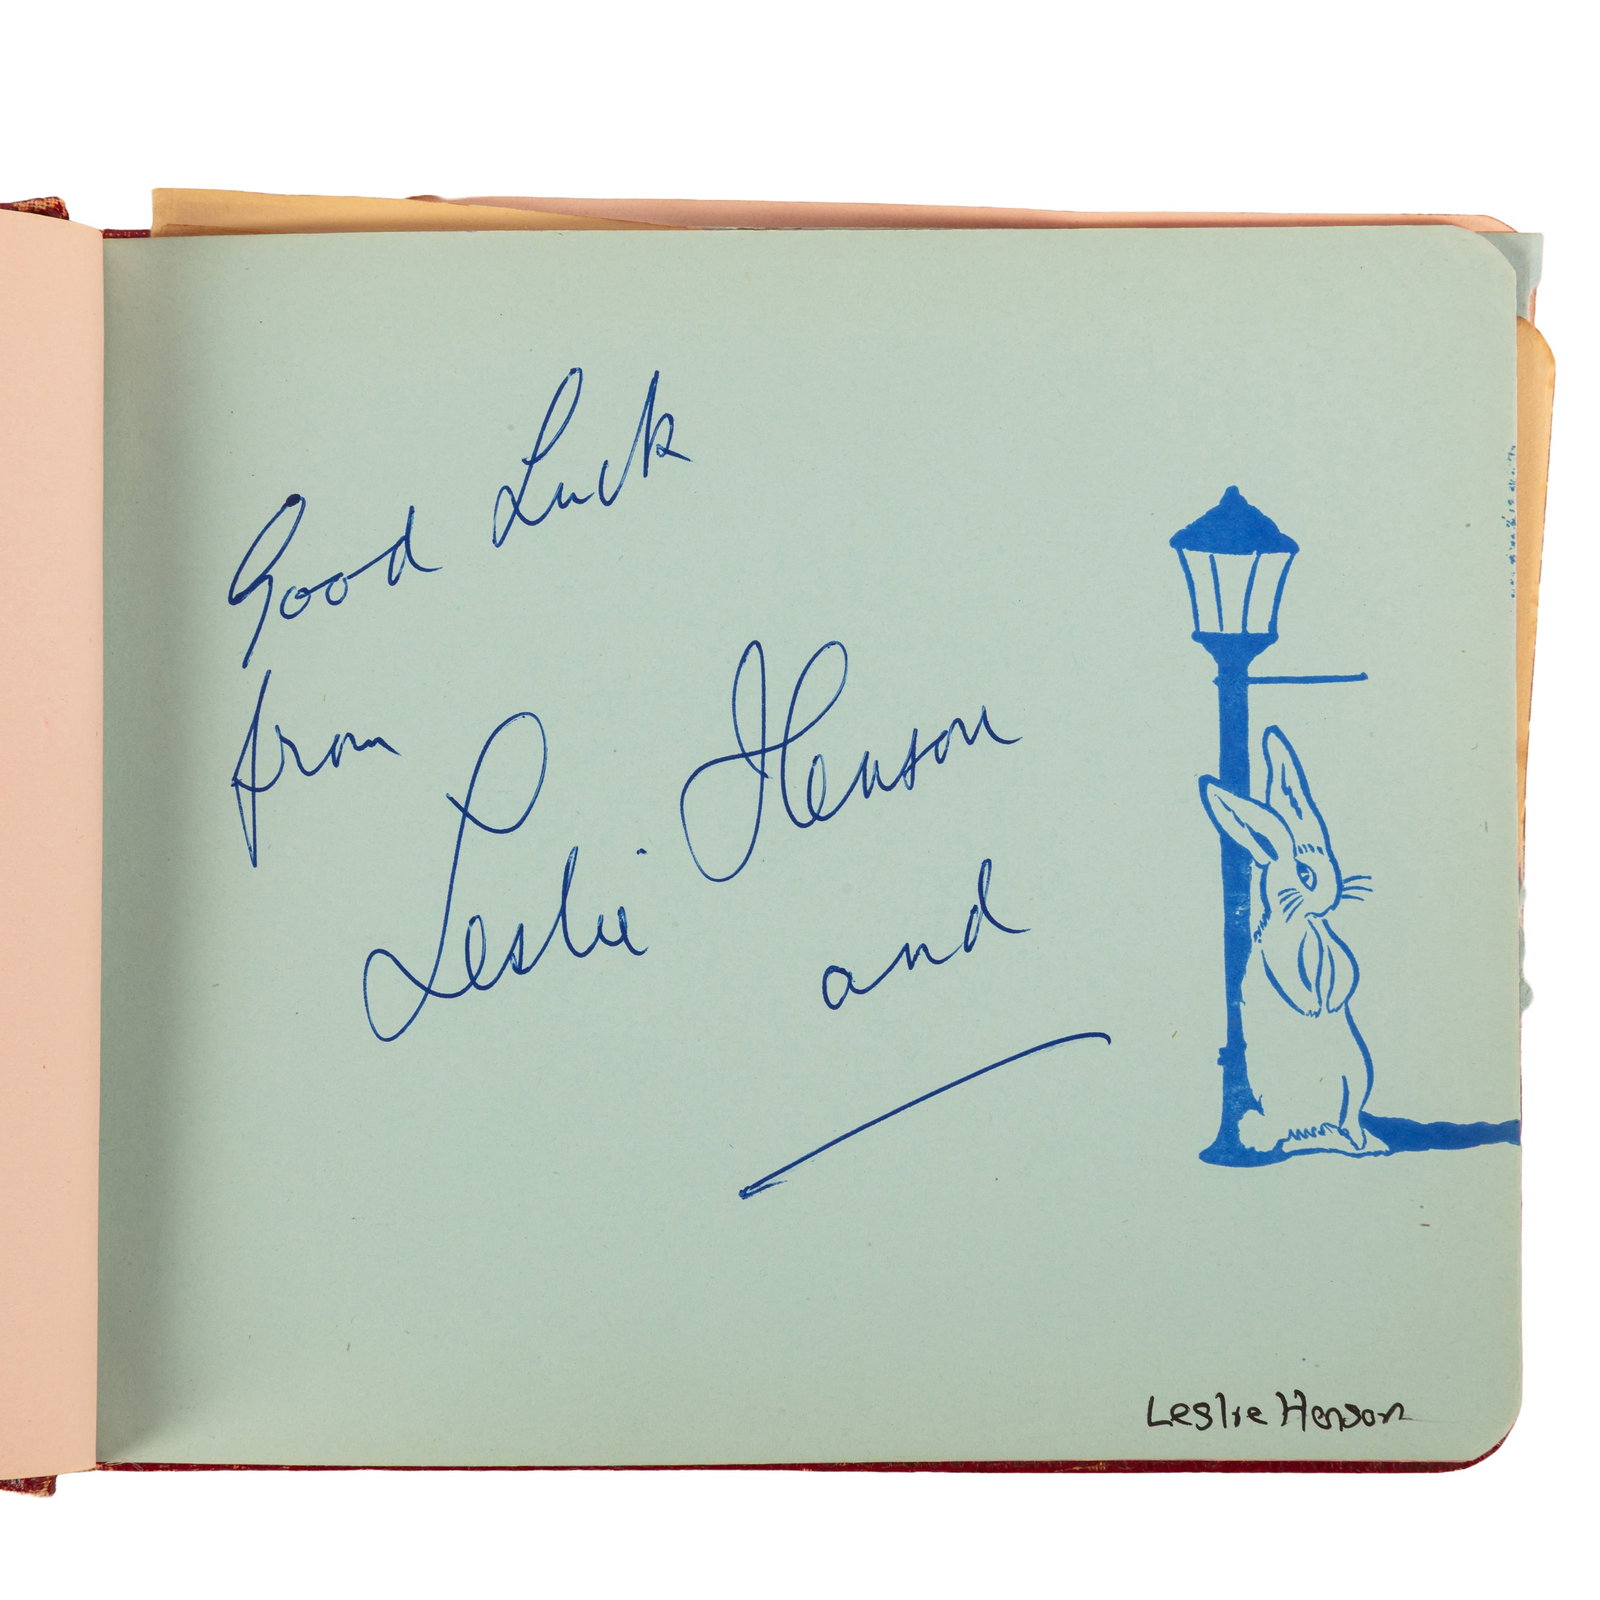 Good Luck
from
Leslie Henson
and
Leslie Henson